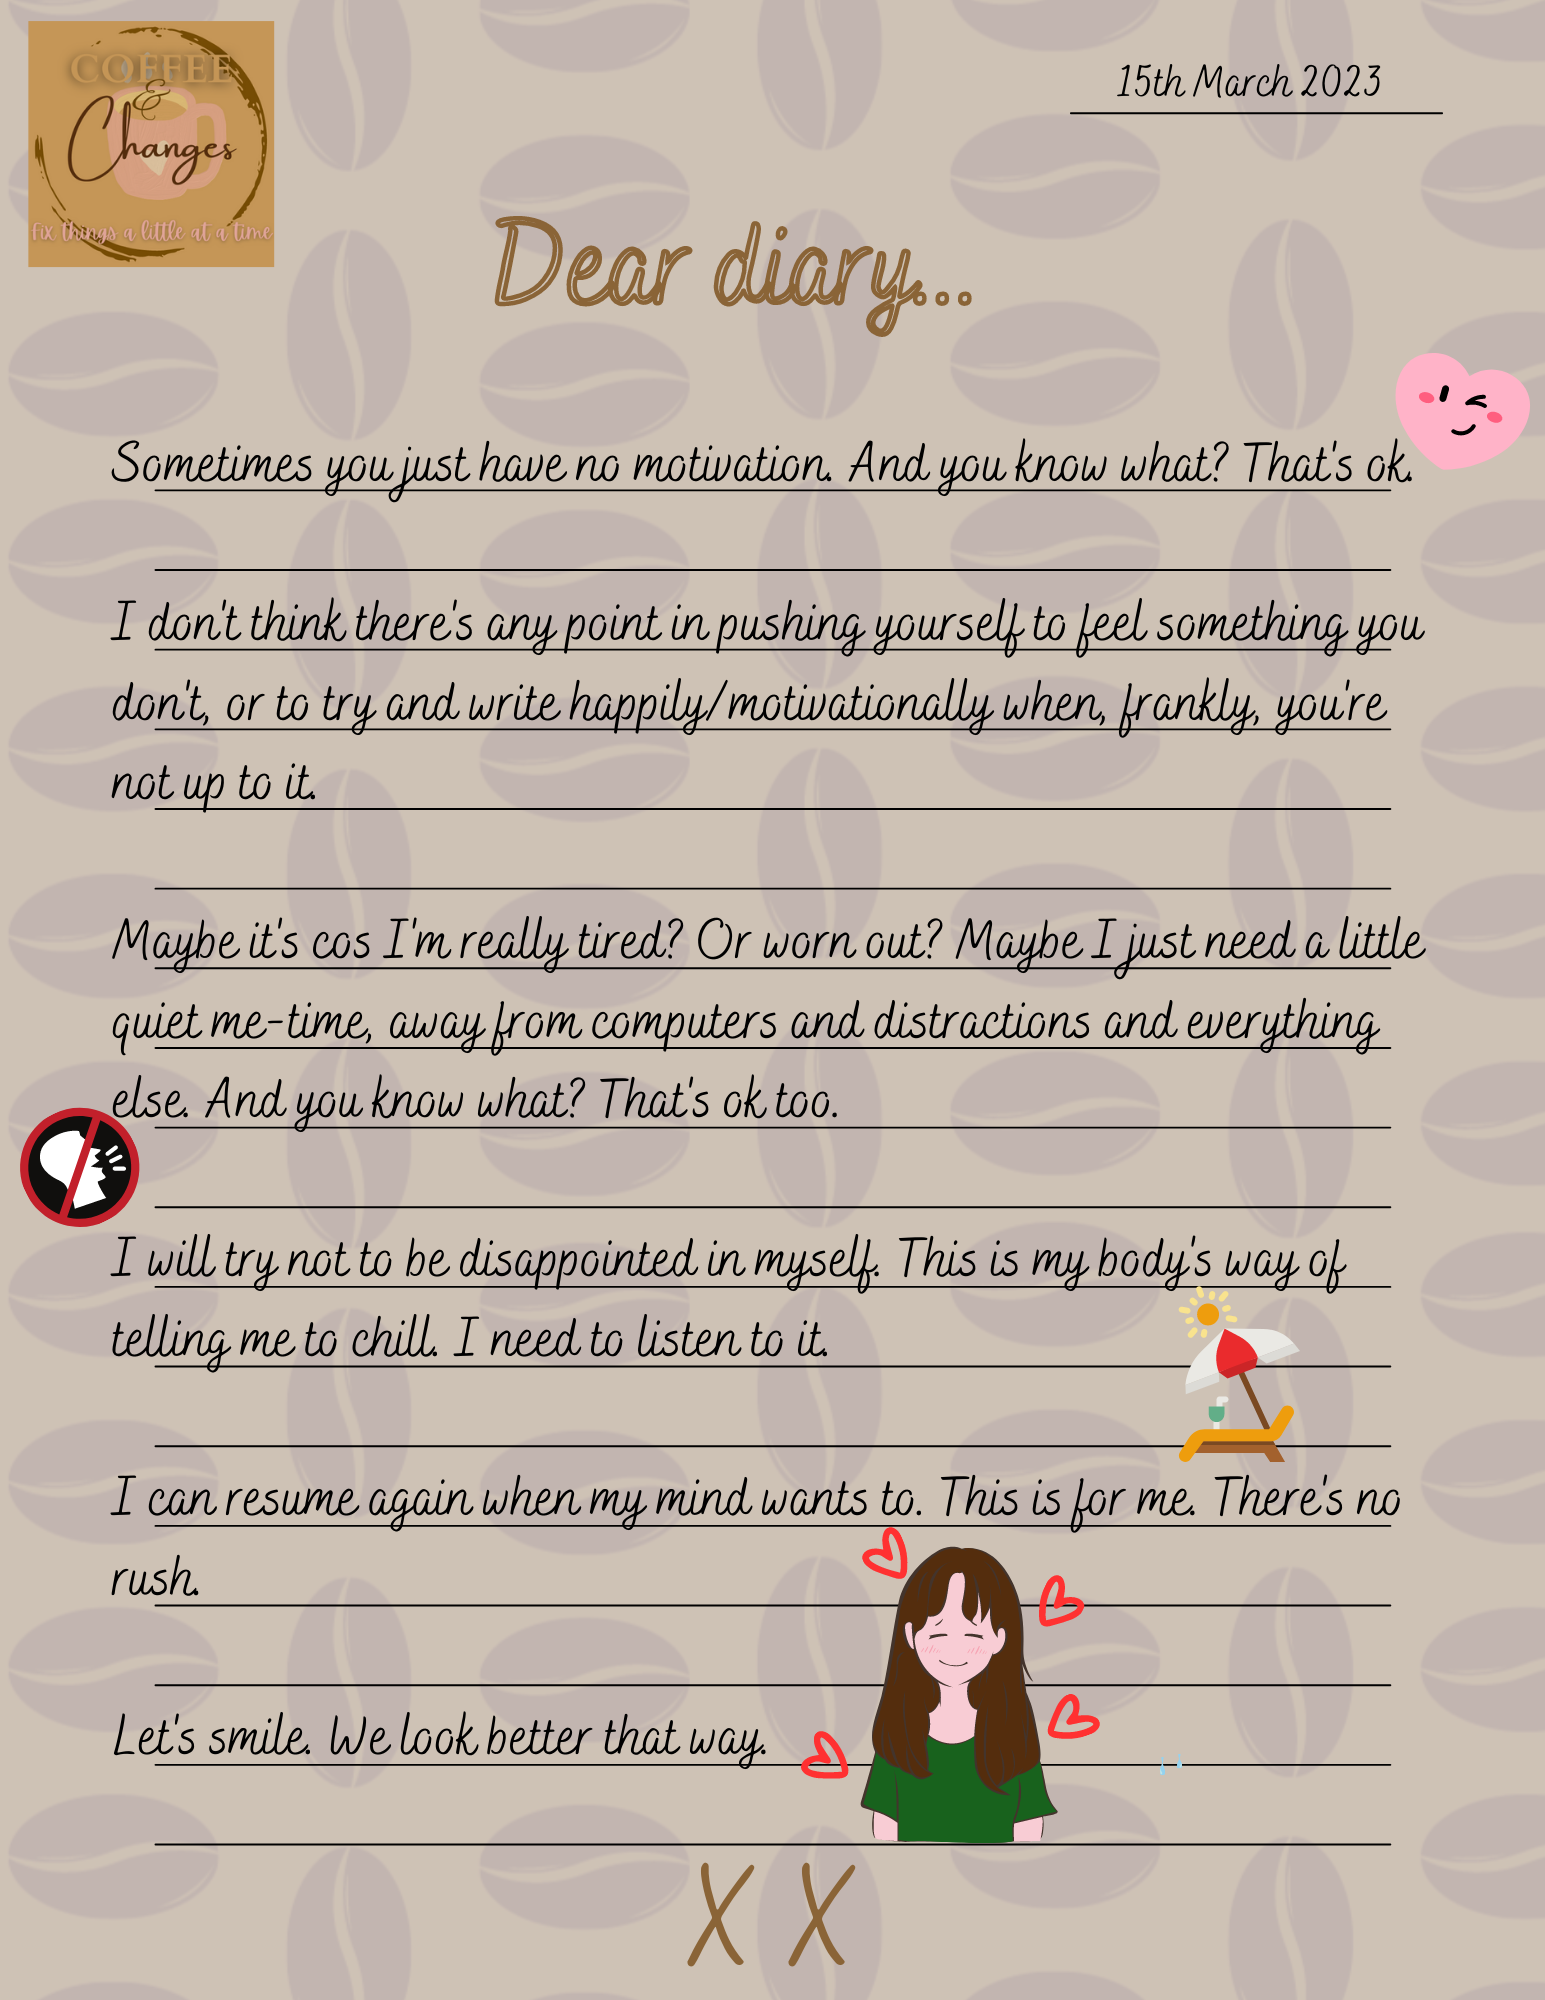 COFFEE
&
Changes
Fix things a little at a time
15th March 2023
Dear diary...
Sometimes you just have no motivation. And you know what? That's ok.
I don't think there's any point in pushing yourself to feel something you
don't, or to try and write happily/motivationally when, frankly, you're
not up to it.
Maybe it's cos I'm really tired? Or worn out? Maybe I just need a little
quiet me-time, away from computers and distractions and everything
else. And you know what? That's ok too.
I will try not to be disappointed in myself. This is my body's way of
telling me to chill. I need to listen to it.
I can resume again when my mind wants to. This is for me. There's no
rush.
Let's smile. We look better that way.
X X